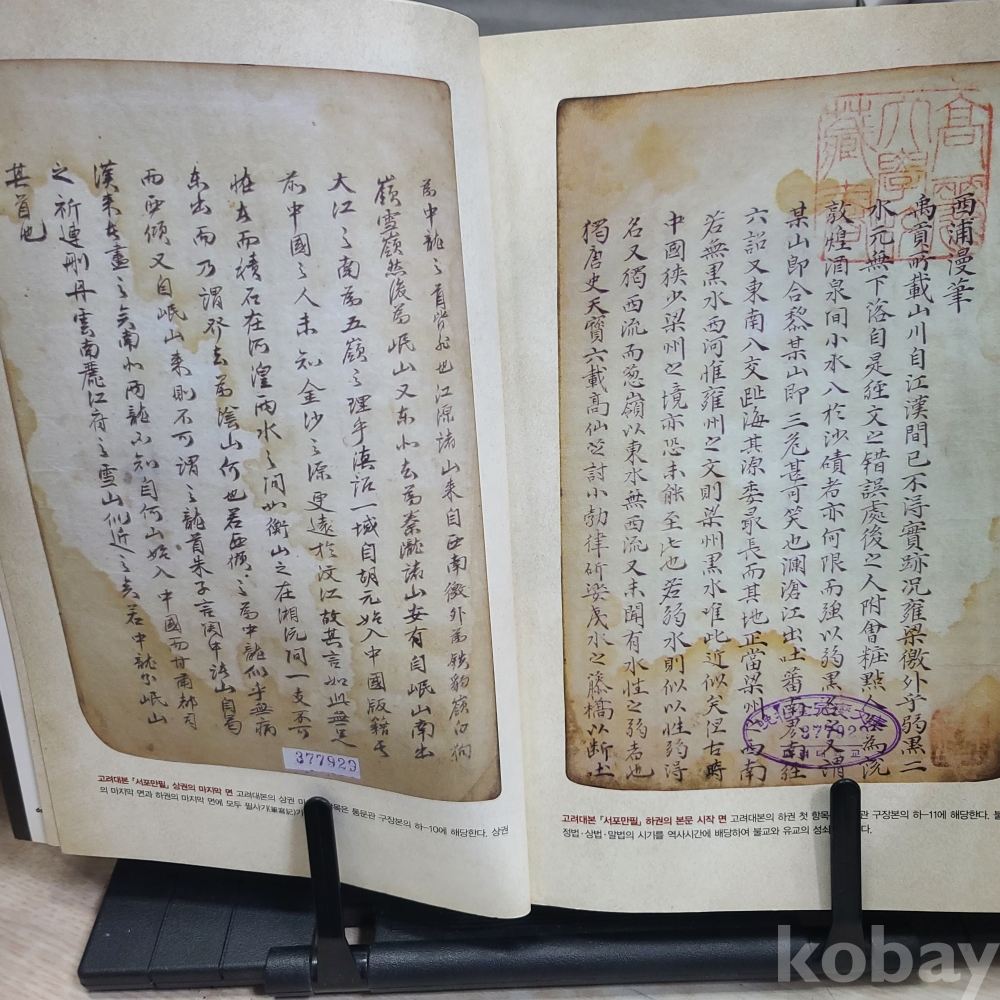 為中龍之首皆非也江源諸山來自西南徼外為鐵豹嶺白狗
嶺雪嶺然後為岷山又東北去為秦隴諸山安有自岷山南出
大江之南為五嶺之理乎滇詔一域自胡元始入中國版籍
前中國之人未知金沙之源更遠於汶江故其言如此無足
恠者而積石在河湟兩水之間如衡山之在湘沅間一支不可
東出而乃謂發去為陰山何也若西傾之為中龍似乎無病
而西傾又自岷山來則不可謂之龍首朱子言関中諸山自蜀
漢來者盡之矣南北兩龍不知自何山始入中國而甘肅都司
之祈連刪丹雲南麗江府之雪山似近之矣若中龍岷山
其首也
377929
고려대본 『서포만필』 상권의 마지막 면 고려대본의 상권 마지막 항목은 통문관 구장본의 하-10에 해당한다. 상권
의 마지막 면과 하권의 마지막 면에 모두 필사기(筆寫記)가
西浦漫筆
禹貢所載山川自江漢間已不得實跡况雍梁徼外乎弱黑二
水元無下落自是經文之錯誤處後之人附會粧點人為流
敦煌酒泉間小水入於沙磧者亦何限而強以弱黑名之又謂
某山即合黎某山即三危甚可笑也瀾滄江出吐蕃南
六詔又東南入交趾海其源委最長而其地正當梁州西南
若無黑水西河惟雍州之文則梁州黑水唯此近似矣但古時
中國狹少梁州之境亦恐未能至此也若弱水則似以性弱得
名又獨西流而葱嶺以東水無西流又未聞有水性之弱者也
獨唐史天寶六載高仙芝討小勃律斫婆夷水之藤橋以斷吐
고려대본 『서포만필』 하권의 본문 시작 면 고려대본의 하권 첫 항목 구장본의 하-11에 해당한다.
정법·상법·말법의 시기를 역사시간에 배당하여 불교와 유교의 성쇠
kobay